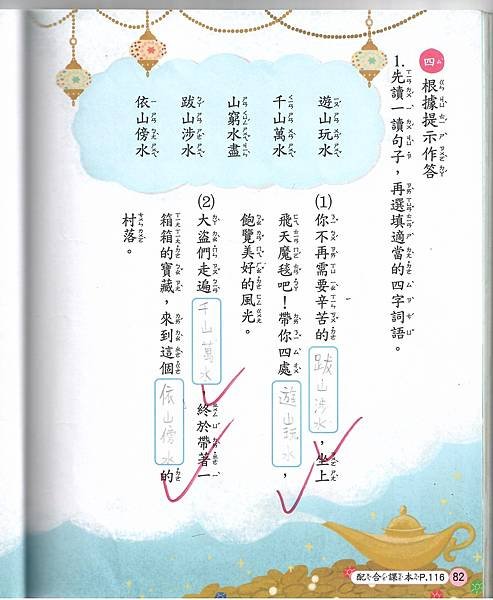 四 根據提示作答
1.先讀一讀句子，再選填適當的四字詞語。
遊山玩水
千山萬水
山窮水盡
跋山涉水
依山傍水
(1)你不再需要辛苦的跋山涉水，坐上
飛天魔毯吧！帶你四處遊山玩水，
飽覽美好的風光。
(2)大盜們走遍千山萬水，終於帶著一
箱箱的寶藏，來到這個依山傍水的
村落。
配合課本P.116 82